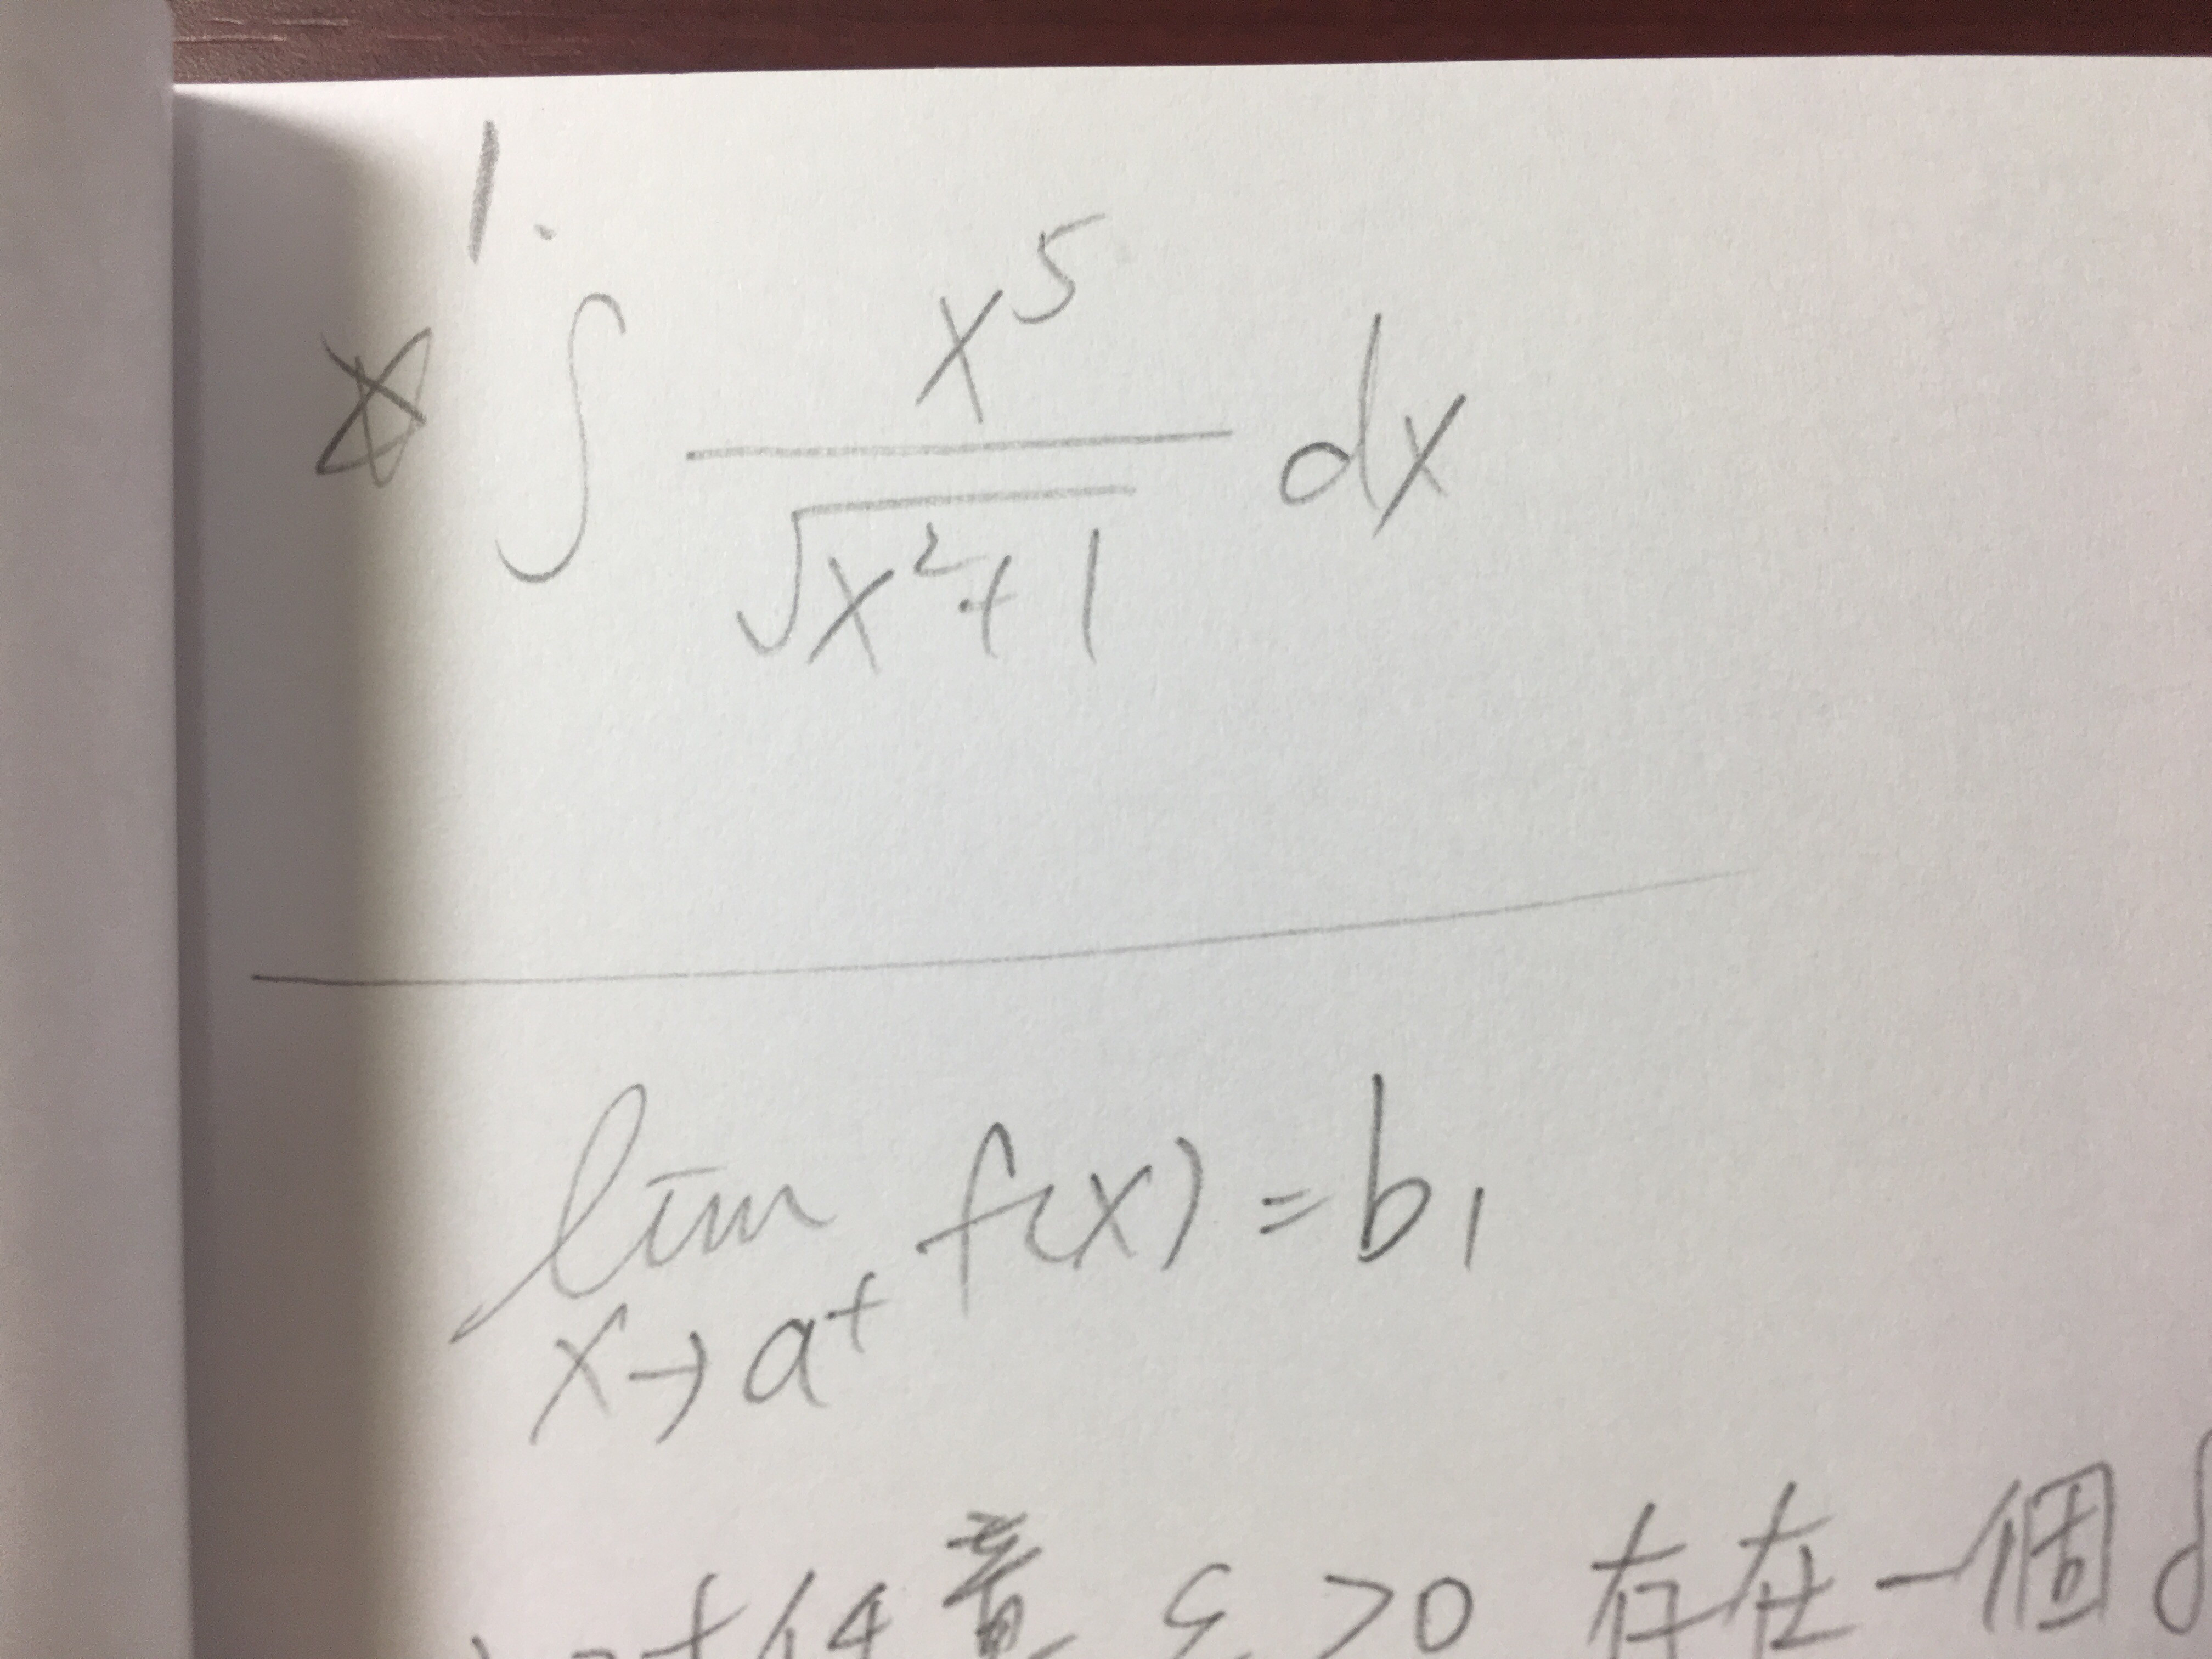 1.
☆ ∫ x⁵/√(x²+1) dx
lim f(x) = b₁
x→a⁺
任意 ε >0 存在一個 δ